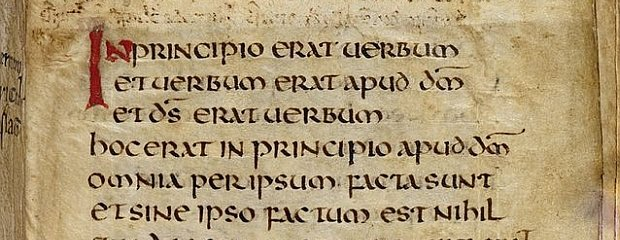 IN PRINCIPIO ERAT UERBUM
ET UERBUM ERAT APUD DM̄
ET DS̄ ERAT UERBUM
HOC ERAT IN PRINCIPIO APUD DM̄
OMNIA PER IPSUM FACTA SUNT
ET SINE IPSO FACTUM EST NIHIL